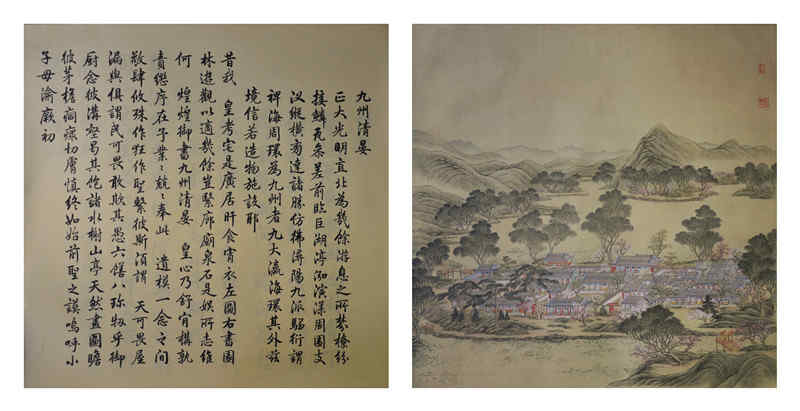 九州清晏
正大光明直北為幾餘游息之所棼橑紛
接鱗瓦參差前臨巨湖渟泓演漾周圍支
汊縱橫旁達諸勝仿彿潯陽九派騶衍謂
裨海周環為九州者九大瀛海環其外茲
境信若造物施設耶
昔我 皇考宅是廣居旰食宵衣左圖右書園
林遊觀以適幾餘豈繄廊廟泉石是娛所志維
何 煌煌御書九州清晏 皇心乃舒肯構孰
責繼序在予業〻兢〻奉此 遺模一念之間
敬肆攸殊作狂作聖繫彼斯須謂 天可畏屋
漏與俱謂民可畏敢欺其愚六膳八珍牣乎御
厨念彼溝壑曷其飽諸水榭山亭天然畫圖瞻
彼茅檐痌瘝切膚慎終如始前聖之謨嗚呼小
子毋渝厥初